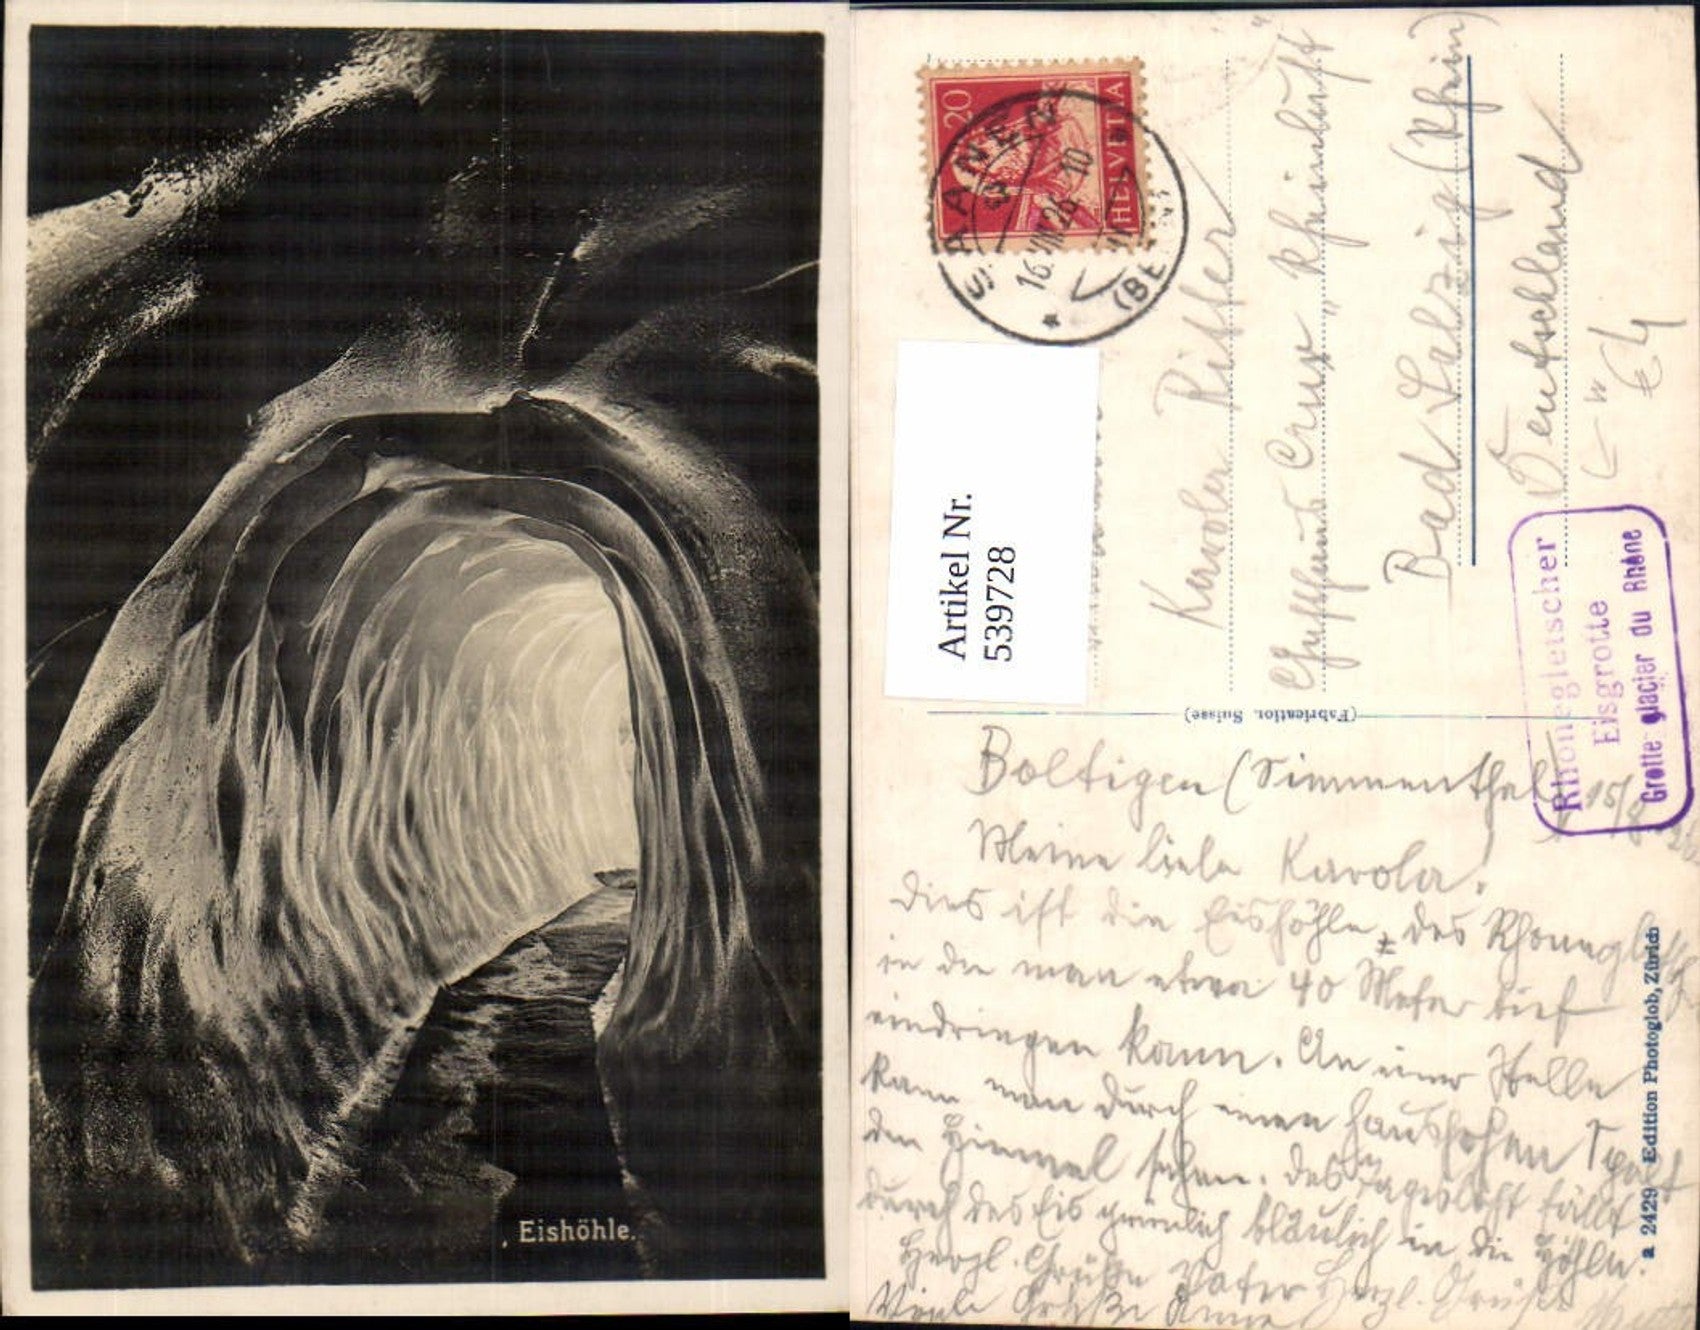 Eishöhle.
HELVETIA
20
SAANEN
16.VIII.26.10
(BE
Artikel Nr.
539728
Karola Ritter
"Rheinluft"
Bad Salzig (Rhein)
Deutschland
Rhonegletscher
Eisgrotte
Grotte glacier du Rhône
(Fabrication Suisse)
Boltigen (Simmenthal) 15/8
Meine liebe Karola!
dies ist die Eishöhle des
in die man etwa 40 Meter tief
eindringen kann. An einer Stelle
kann man durch einen haushohen Spalt
den Himmel sehen. Das Tageslicht fällt
durch das Eis grünlich bläulich in die Höhle.
Herzl. Grüße Vater Herzl. Grüße
Viele Grüße
a 2429 Edition Photoglob, Zürich